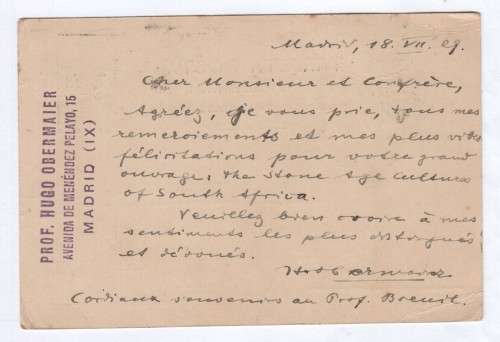 Madrid, 18. VII. 29.
Cher Monsieur et Confrère,
Agréez, je vous prie, tous mes
remerciements et mes plus vives
félicitations pour votre grand
ouvrage: the Stone Age Cultures
of South Africa.
Veuillez bien croire à mes
sentiments les plus distingués
et dévoués.
H. Obermaier
Cordiaux souvenirs au Prof. Breuil.
PROF. HUGO OBERMAIER
AVENIDA DE MENÉNDEZ PELAYO, 15
MADRID (IX)